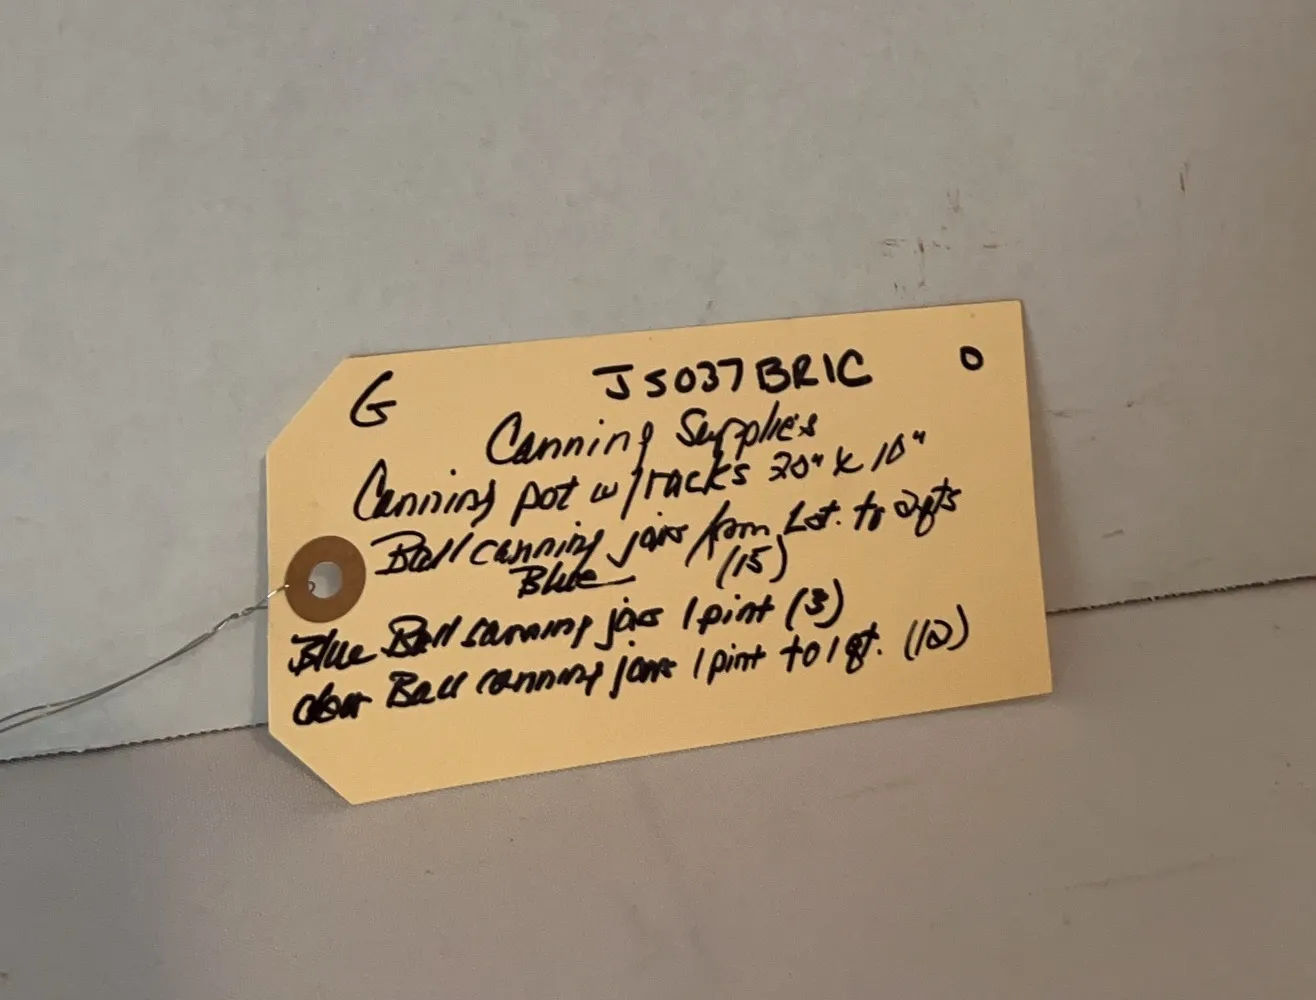 G JS037BRIC O
Canning Supplies
Canning pot w/racks 20" x 10"
Ball canning jars from 1 qt. to 2 qts
Blue (15)
Blue Ball canning jars 1 pint (3)
clear Ball canning jars 1 pint to 1 qt. (12)